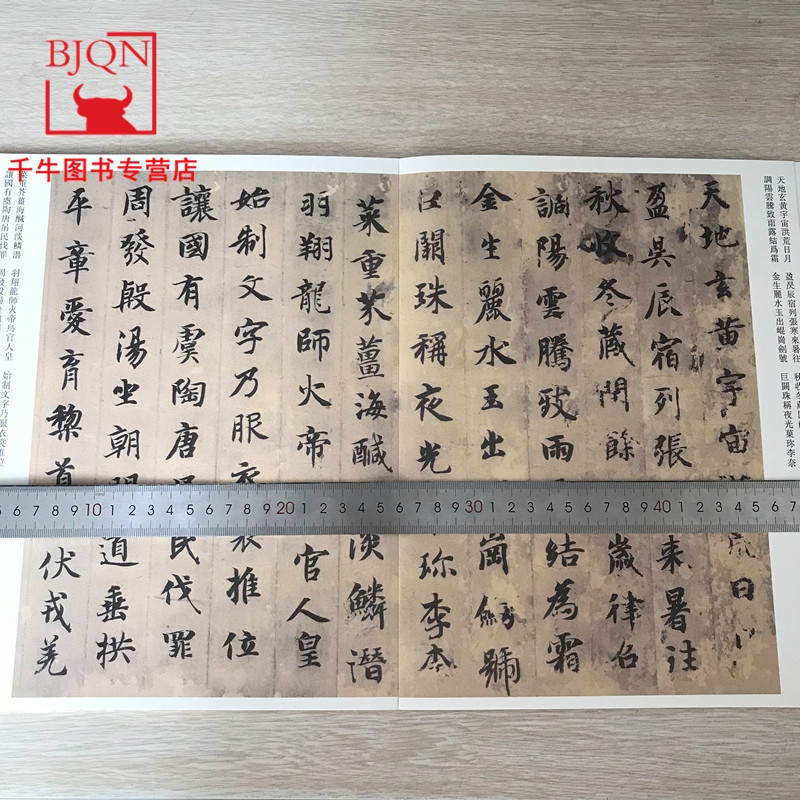 BJQN
千牛图书专营店
天地玄黃宇宙洪荒日月 盈昃辰宿列張寒來暑往 秋收冬藏
調陽雲騰致雨露結爲霜 金生麗水玉出崐崗劍號 巨闕珠稱夜光菓珍李柰
天地玄黃宇宙荒日月
盈昃辰宿列張來暑往
秋收冬藏閏餘歲律召
調陽雲騰致雨結為霜
金生麗水玉出崗劍號
巨闕珠稱夜光珍李柰
菜重芥薑海鹹淡鱗潛
羽翔龍師火帝官人皇
始制文字乃服衣裳推位
讓國有虞陶唐民伐罪
周發殷湯坐朝問道垂拱
平章愛育黎首伏戎羌
菜重芥薑海鹹河淡鱗潛 羽翔龍師火帝鳥官人皇 始制文字乃服衣裳推位
讓國有虞陶唐吊民伐罪 周發殷湯
5 6 7 8 9 10 1 2 3 4 5 6 7 8 9 20 1 2 3 4 5 6 7 8 9 30 1 2 3 4 5 6 7 8 9 40 1 2 3 4 5 6 7